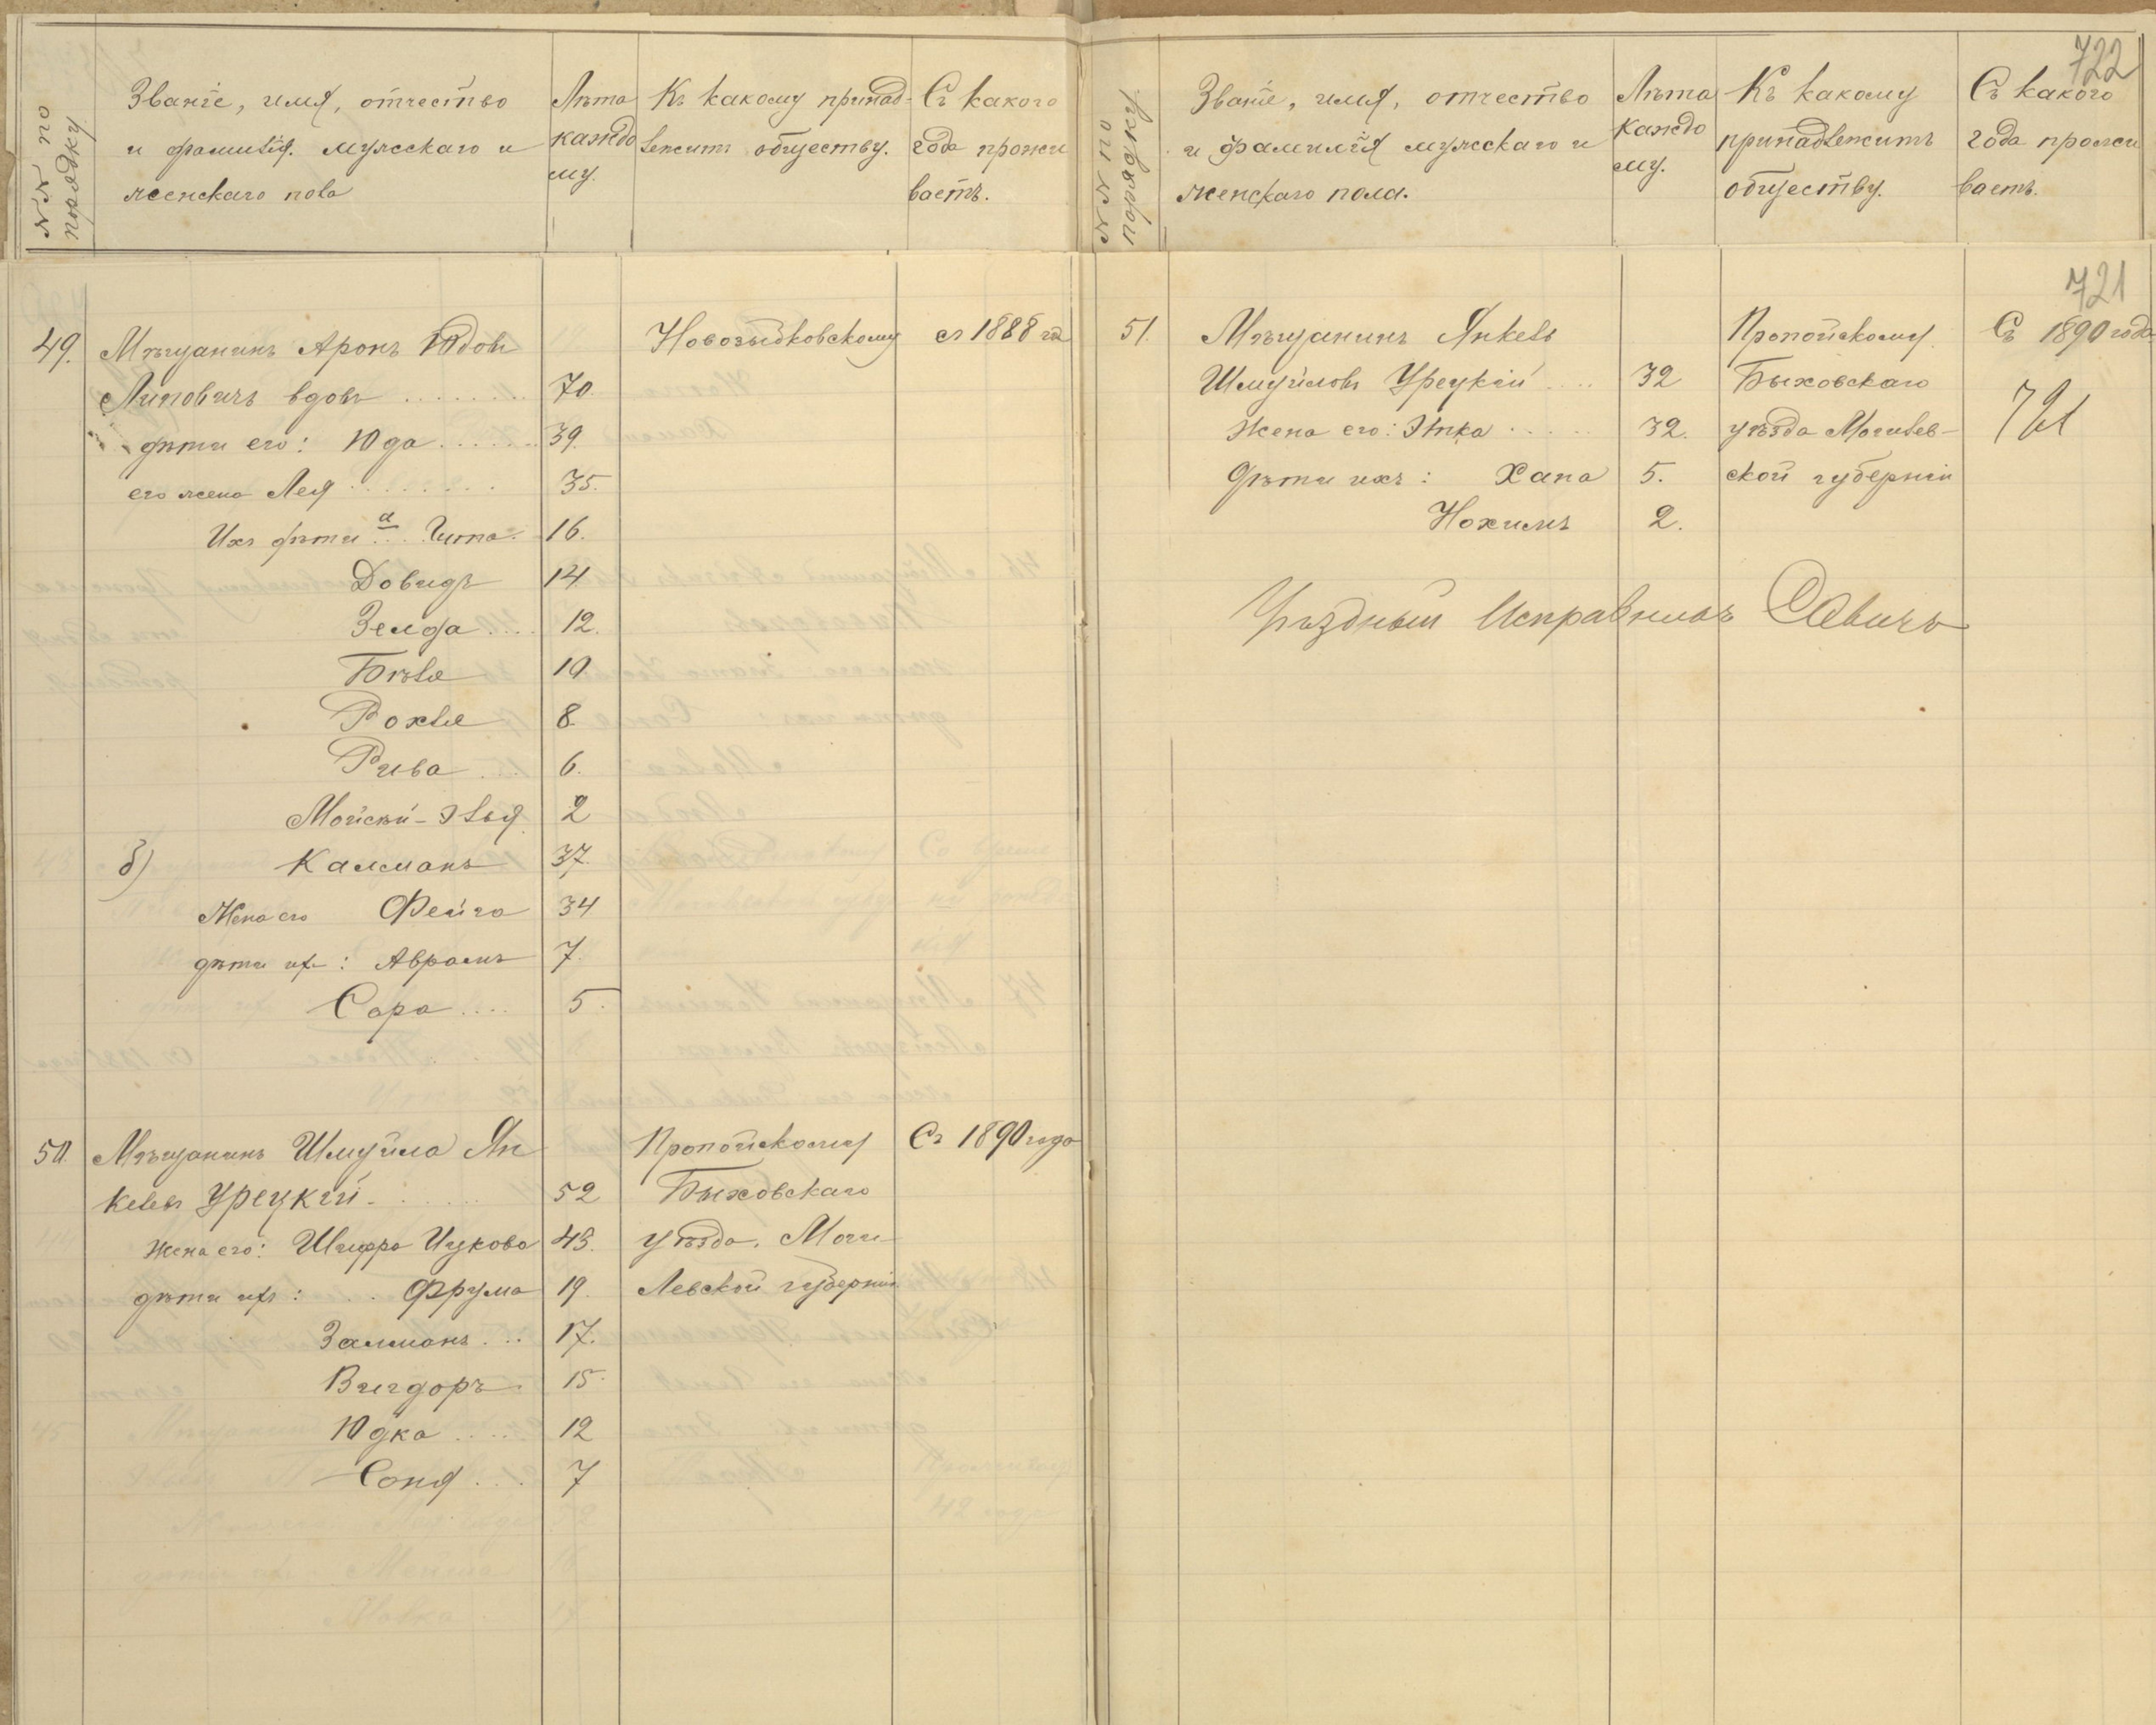 №№ по порядку
Званіе, имя, отчество
и фамилія мужскаго и
женскаго пола
Лѣта
каждо
му.
Къ какому принад-
лежитъ обществу.
Съ какого
года прожи
ваетъ.
49.
Мѣщанинъ Аронъ Юдовъ
Новозыбковскому
съ 1888 год
Липовичъ вдовъ ........ 70.
дѣти его: Юда ...... 39.
его жена Лея ........ 35.
Ихъ дѣти а ... Гита. 16.
Довидъ 14
Зелда .... 12.
Бѣля 10
Рохля 8.
Рива .... 6.
Мойсѣй-Элья. 2
б) Калманъ 37.
Жена его Фейга 34
дѣти ихъ: Аврамъ 7.
Сора .... 5.
50.
Мѣщанинъ Шмуйла Ян
Пропойскому
Съ 1890 года
келевъ Урецкій ...... 52
Быховскаго
Жена его: Шифра Ицкова 43.
уѣзда, Моги-
дѣти ихъ: .. Фрума 19.
левской губерніи
Залманъ ... 17.
Вигдоръ. 15.
Юдка .... 12
Соня ... 7
722
№№ по порядку
Званіе, имя, отчество
и фамилія мужскаго и
женскаго пола.
Лѣта
каждо
му.
Къ какому
принадлежитъ
обществу.
Съ какого
года прожи
ваетъ.
721
51.
Мѣщанинъ Янкель
Пропойскому
Съ 1890 года
Шмуйловъ Урецкій .... 32
Быховскаго
Жена его: Этка ..... 32.
уѣзда Могилев-
721
Дѣти ихъ: Хана 5.
ской губерніи
Нохимъ 2.
Уѣздный Исправникъ